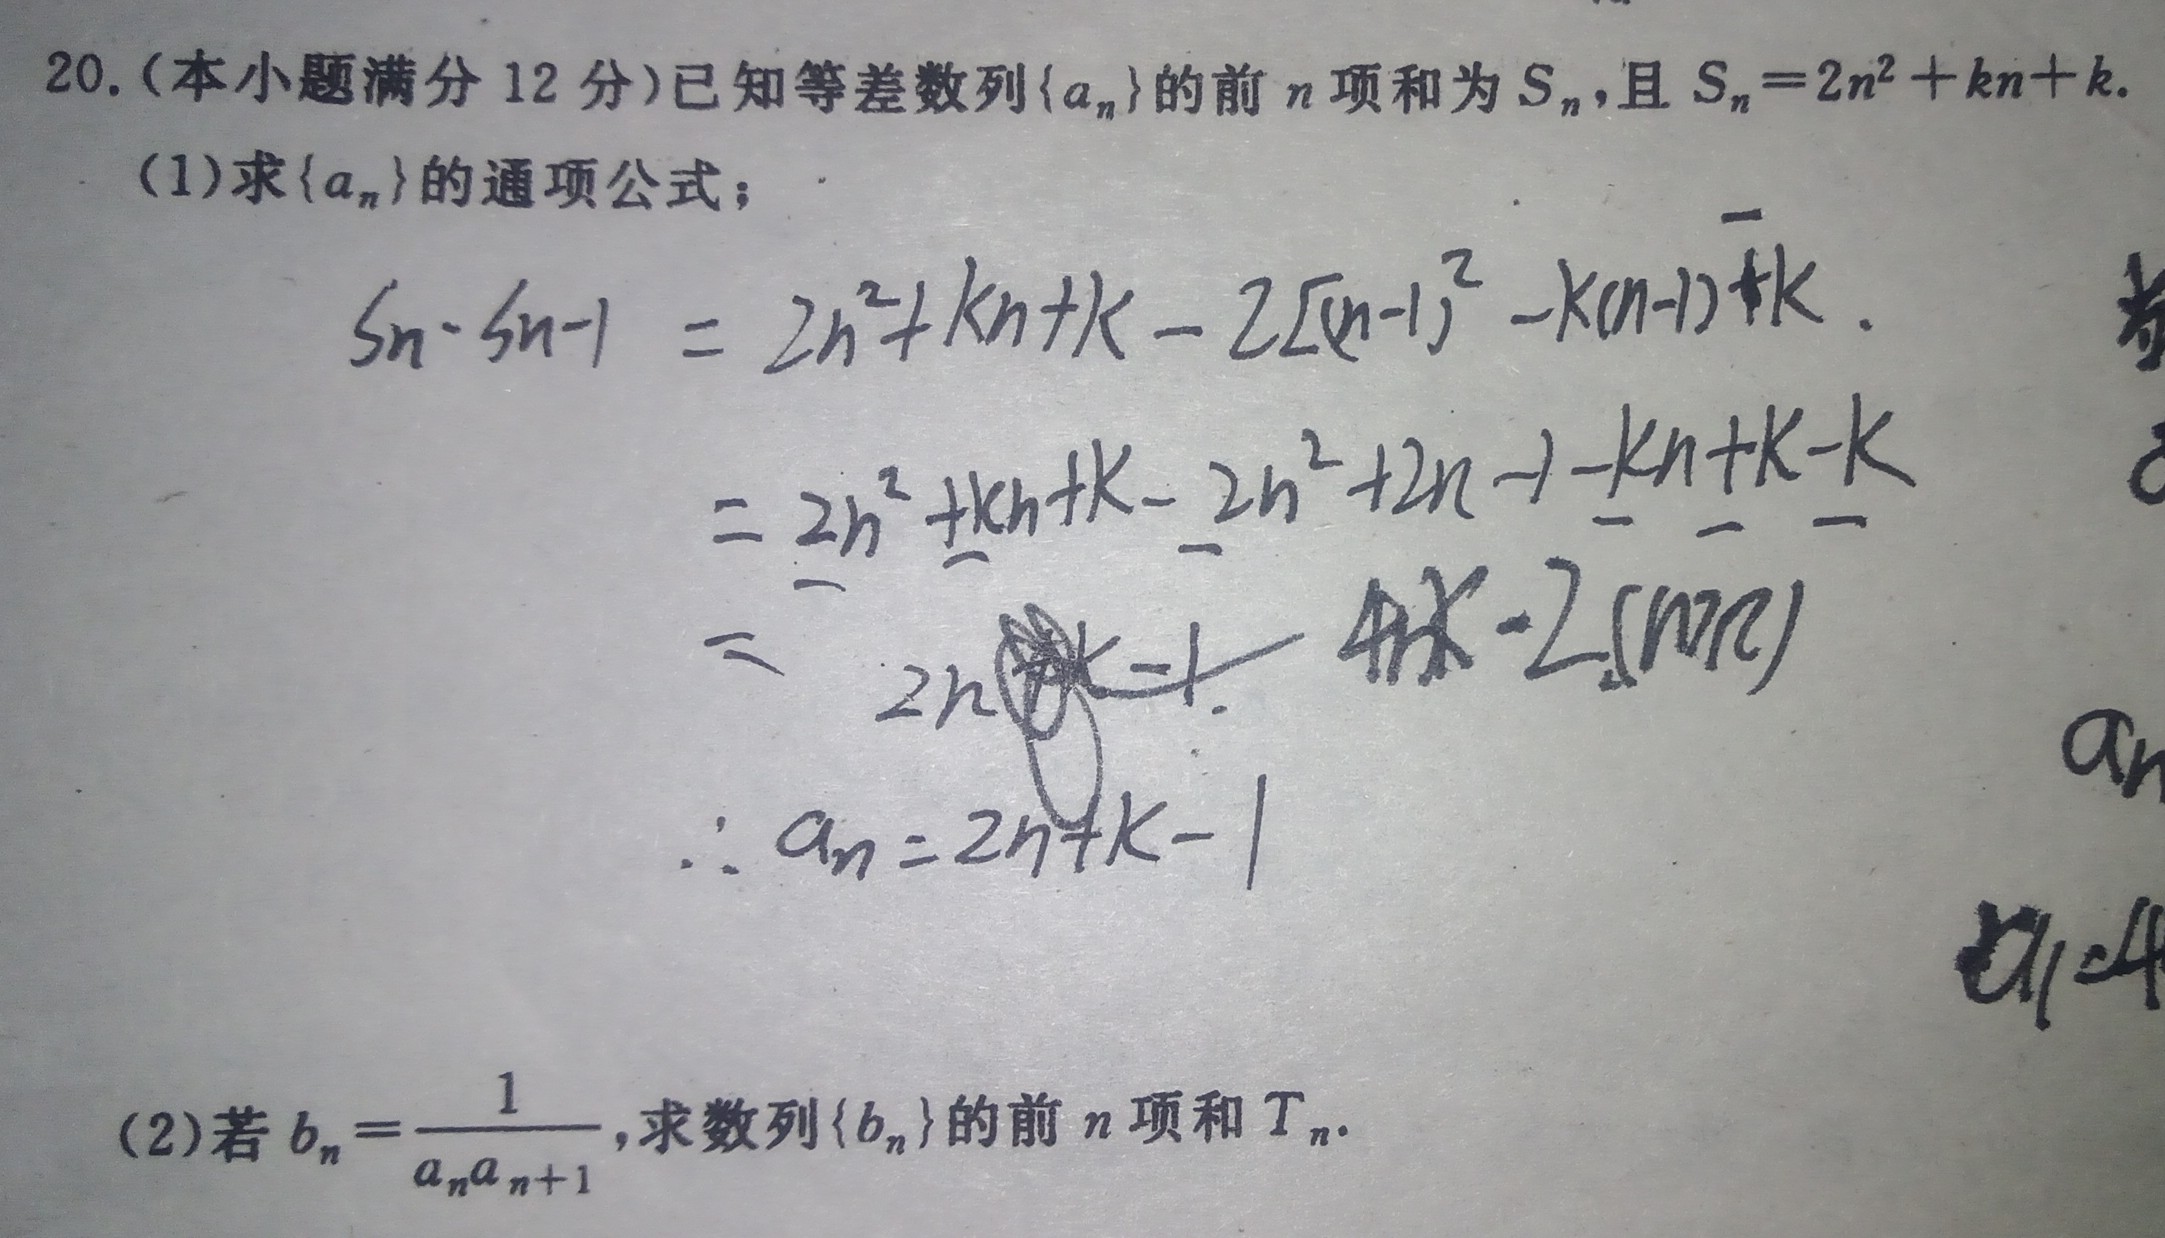 20.(本小题满分 12 分)已知等差数列{aₙ}的前 n 项和为 Sₙ,且 Sₙ=2n²+kn+k.
(1)求{aₙ}的通项公式;
Sn-Sn-1 = 2n²+kn+k-2[(n-1)²-k(n-1)+k.
=2n²+kn+k-2n²+2n-1-kn+k-k
= 2n+k-1. 4n -2
∴ an=2n+k-1
an
a1=4
(2)若 bₙ=1/(aₙaₙ₊₁),求数列{bₙ}的前 n 项和 Tₙ.